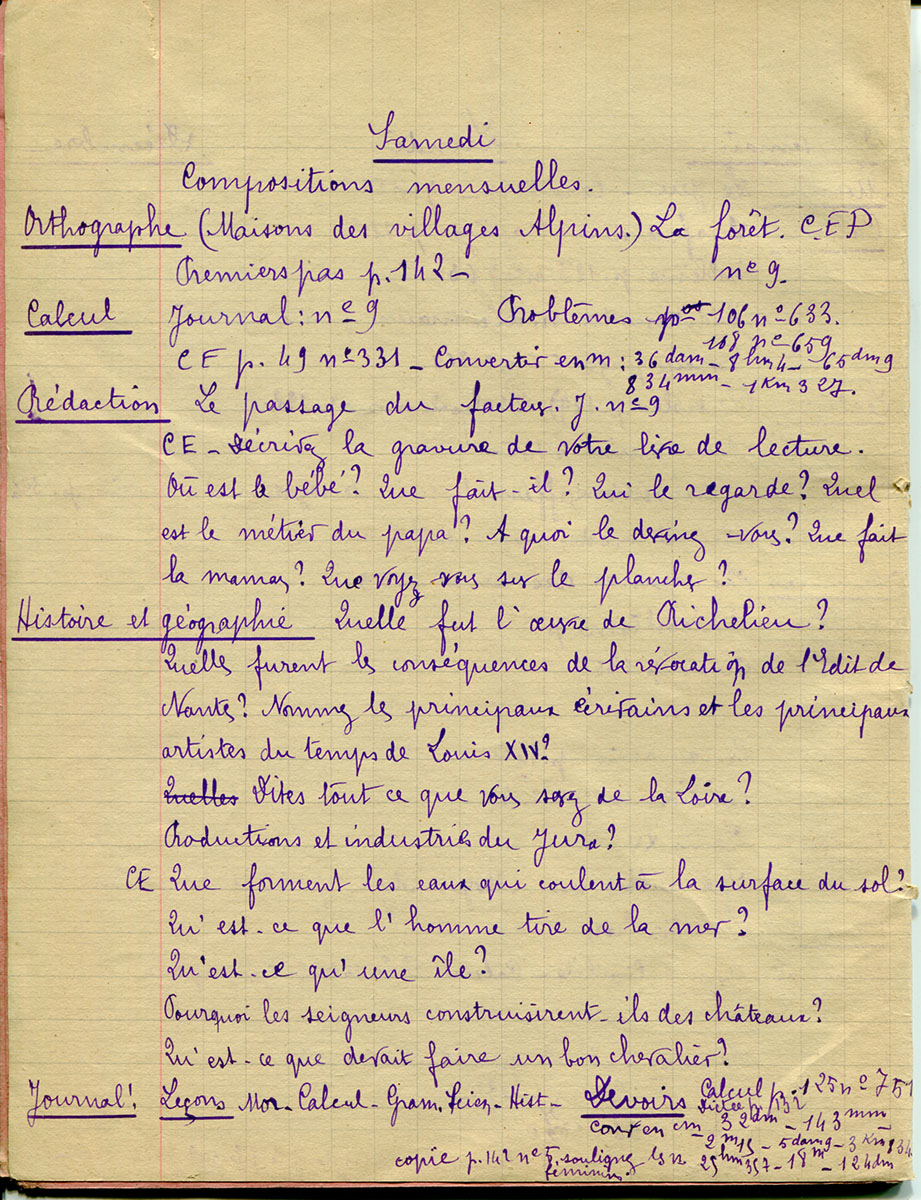 Samedi
Compositions mensuelles.
Orthographe (Maisons des villages Alpins.) La forêt. C.E.P
Premiers pas p. 142 - n° 9.
Calcul Journal : n° 9 Problèmes 106 n° 633.
108 n° 659
CE p. 49 n° 331 - Convertir en m : 36 dam - 8 hm 4 - 65 dm 9
834 mm - 1 Km 327.
Rédaction Le passage du facteur. J. n° 9
CE - Décrivez la gravure de votre livre de lecture.
Où est le bébé ? Que fait-il ? Qui le regarde ? Quel
est le métier du papa ? A quoi le devinez-vous ? Que fait
la maman ? Que voyez vous sur le plancher ?
Histoire et géographie Quelle fut l'œuvre de Richelieu ?
Quelles furent les conséquences de la révocation de l'Edit de
Nantes ? Nommez les principaux écrivains et les principaux
artistes du temps de Louis XIV ?
Quelles Dites tout ce que vous savez de la Loire ?
Productions et industries du Jura ?
CE Que forment les eaux qui coulent à la surface du sol ?
Qu'est-ce que l'homme tire de la mer ?
Qu'est-ce qu'une île ?
Pourquoi les seigneurs construisirent-ils des châteaux ?
Qu'est-ce que devait faire un bon chevalier ?
Journal : Leçons Mor - Calcul - Gram. Scien - Hist - Devoirs Calcul p. 125 n° 751
Dictée p. 132
Conv en cm 32 dm - 143 mm -
2 m 15 - 5 dam 9 - 3 Km 834
copie p. 142 n° 5, souligner les n. 25 hm 357 - 18 m - 124 dm
féminins.